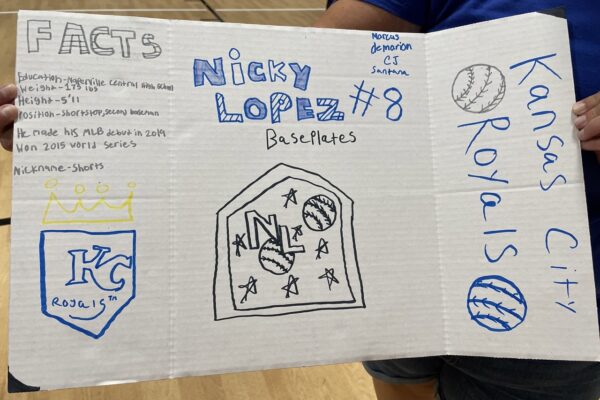 FACTS
Education-Naperville Central High School
Weight-175 lbs
Height-5'11
Position-shortstop, second baseman
He made his MLB debut in 2019
Won 2015 world series
Nickname-Shorts
KC
Royals™
Nicky
Lopez #8
Baseplates
NL
Marcus
demarion
CJ
Santana
Kansas City
Royals